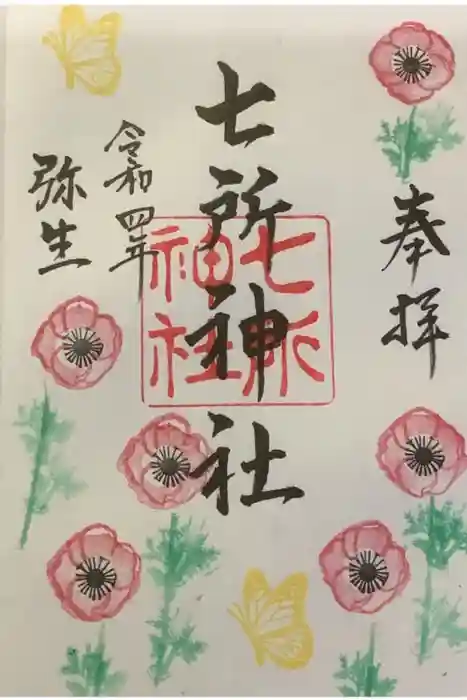 奉拝
七所神社
七所
神社
令和四年
弥生